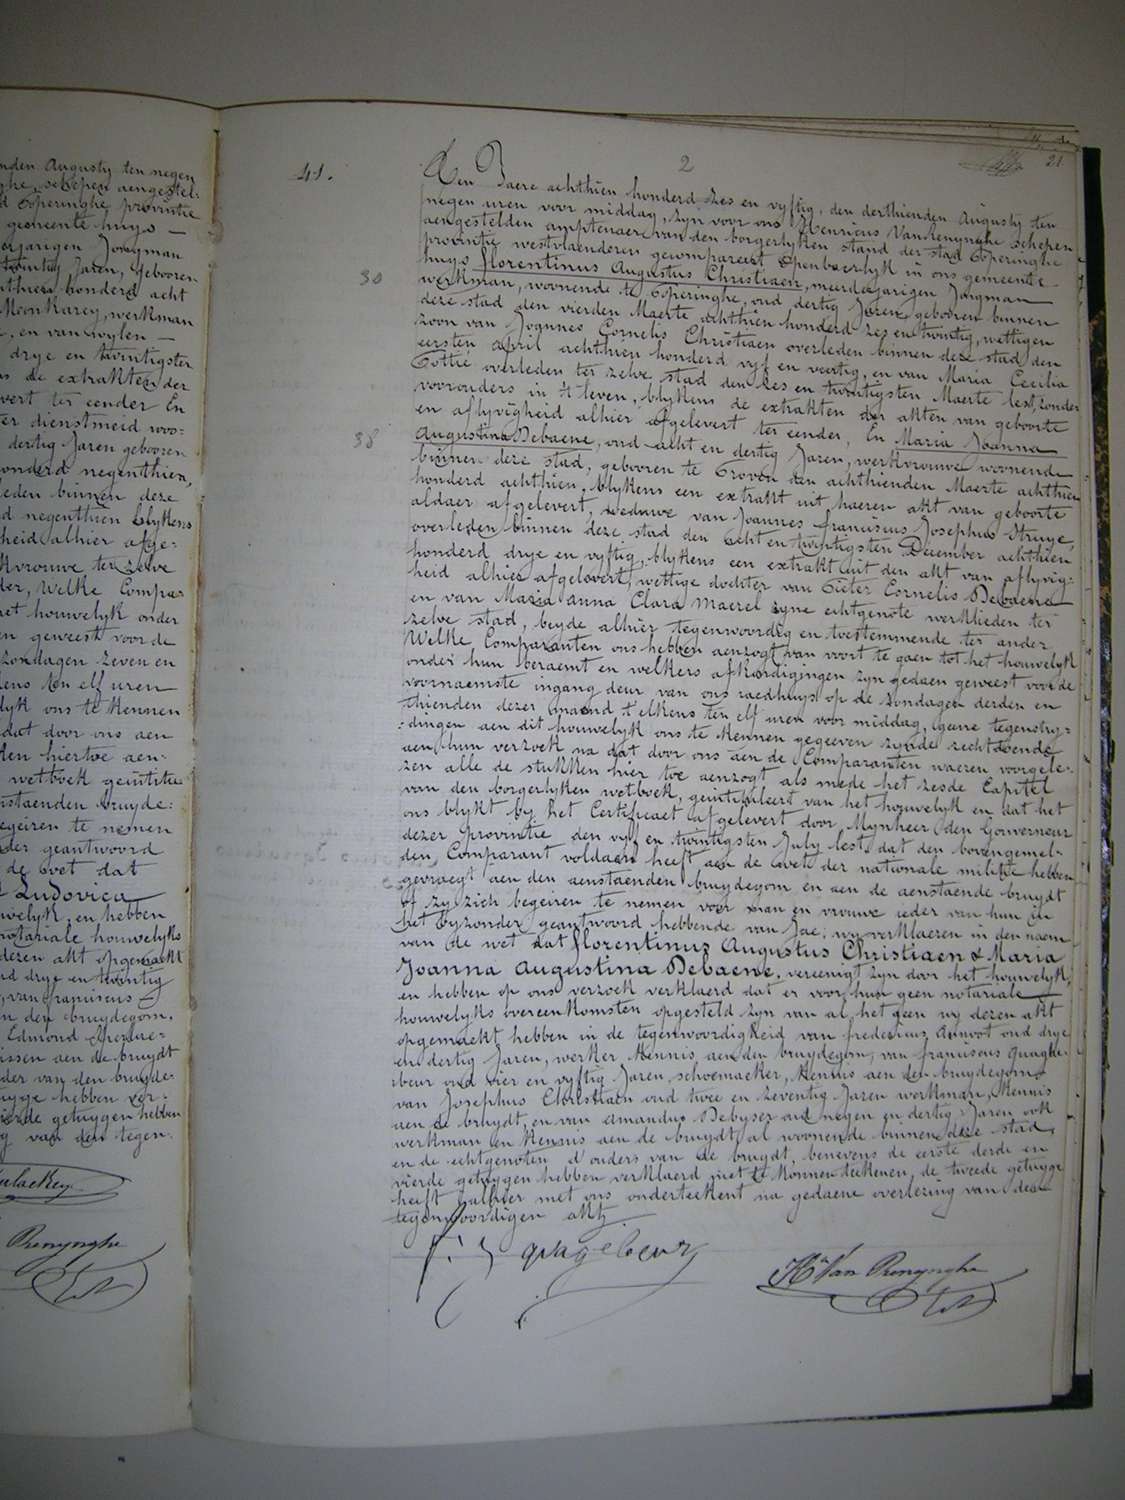 nden Augusty ten negen
ghe, schepen aengestel-
d Poperinghe provintie
gemeente huys —
erjarigen Jongman
twintig Jaren, gebooren
hthien honderd acht
MoonKarey, werkman
, en van wylen —
drye en twintigsten
us de extrakten der
vert ter eender En
er dienstmeid woo:
dertig Jaren gebooren
onderd negenthien,
leden binnen deze
d negenthien blykens
heid alhier afge-
kvrouwe ter zelve
der, Welke Compa-
et houwelyk onder
n geweest voor de
zondagen zeven en
kens ten elf uren
lyk ons te kennen
dat door ons aen
ken hiertoe aen-
wetboek geintitu-
nstaenden bruyde:
egeiren te nemen
der geantwoord
de wet dat
Ludovica
welyk, en hebben
notariale houwelyks
dezen akt opgemaekt
d drye en twintig
, van franciscus
n den bruydegom,
Edmond
issen aen de bruydt
der van den bruyde-
uyge hebben ver-
ierde getuygen hebben
g van den tegen-
ulackey
Renynghe
41.
2
21
Den Jaere achthien honderd zes en vyftig, den derthienden Augusty ten
negen uren voor middag, zyn voor ons Henricus VanRenynghe schepen
aengestelden amptenaer van den borgerlyken stand der stad Poperinghe
provintie westvlaenderen gecompareert openbaerlyk in ons gemeente
30
huys florentinus Augustus Christiaen, meerderjarigen Jongman
werkman, woonende te Poperinghe, oud dertig Jaren gebooren binnen
deze stad den vierden Maerte achthien honderd zes en twintig, wettigen
zoon van Joannes Cornelis Christiaen overleden binnen deze stad den
eersten april achthien honderd vyf en veertig, en van Maria Cecilia
Tottie overleden ter zelve stad den zes en twintigsten Maerte lest, zonder
voorouders in 't leven, blykens de extrakten der akten van geboorte
38
en aflyvigheid alhier afgelevert ter eender, En Maria Joanna
Augustina Debaene, oud acht en dertig Jaren, werkvrouwe woonende
binnen deze stad, gebooren te Proven den achthienden Maerte achthien
honderd achthien, blykens een extrakt uit haeren akt van geboorte
aldaer afgelevert, weduwe van Joannes franciscus Josephus Struye,
overleden binnen deze stad den acht en twintigsten December achthien
honderd drye en vyftig, blykens een extrakt uit den akt van aflyvig-
heid alhier afgelevert, wettige dochter van Pieter Cornelis Debaene
en van Maria anna Clara Maerel zyne echtgenote werklieden ter
zelve stad, beyde alhier tegenwoordig en toestemmende ter ander
Welke Comparanten ons hebben aenzogt van voort te gaen tot het houwelyk
onder hun beraemt en welkers afkondigingen zyn gedaen geweest voor de
voornaemste ingang deur van ons raedhuys op de zondagen derden en
thienden dezer maand t' elkens ten elf uren voor middag, geene tegenstry-
:dingen aen dit houwelyk ons te kennen gegeeven zynde rechtdoende
aen hun verzoek na dat door ons aen de Comparanten waeren voorgele-
zen alle de stukken hier toe aenzogt als mede het zesde Capitel
van den borgerlyken wetboek, geintituleert van het houwelyk en dat het
ons blykt by het Certificaet afgelevert door Mynheer den Gouverneur
dezer provintie den vyf en twintigsten July lest dat den bovengemel-
den Comparant voldaen heeft aen de wet der nationale militie hebben
gevraegt aen den aenstaenden bruydegom en aen de aenstaende bruydt
of zy zich begeiren te nemen voor man en vrouwe ieder van hun in
het byzonder geantwoord hebbende van Jae; wy verklaeren in den naem
van de wet dat florentinus Augustus Christiaen & Maria
Joanna Augustina Debaene, vereenigt zyn door het houwelyk,
en hebben op ons verzoek verklaerd dat er voor hun geen notariale
houwelyks overeenkomsten opgesteld zyn van al het geen wy dezen akt
opgemaekt hebben in de tegenwoordigheid van fredericus Annoot oud drye
en dertig Jaren, werker, Kennis aen den bruydegom, van franciscus Quaghe-
beur oud vier en vyftig Jaren, schoemaeker, Kennis aen den bruydegom
van Josephus Christiaen oud twee en zeventig Jaren werkman, Kennis
aen de bruydt, en van Amandus Debyser oud negen en dertig Jaren ook
werkman en Kennis aen de bruydt, al woonende binnen deze stad,
en de echtgenoten d'ouders van de bruydt, benevens de eerste derde en
vierde getuygen hebben verklaerd niet te konnen teekenen, de tweede getuyge
heeft alhier met ons onderteekent na gedaene overlezing van den
tegenwoordigen akt.
f: quagebeur
Hri Van Renynghe